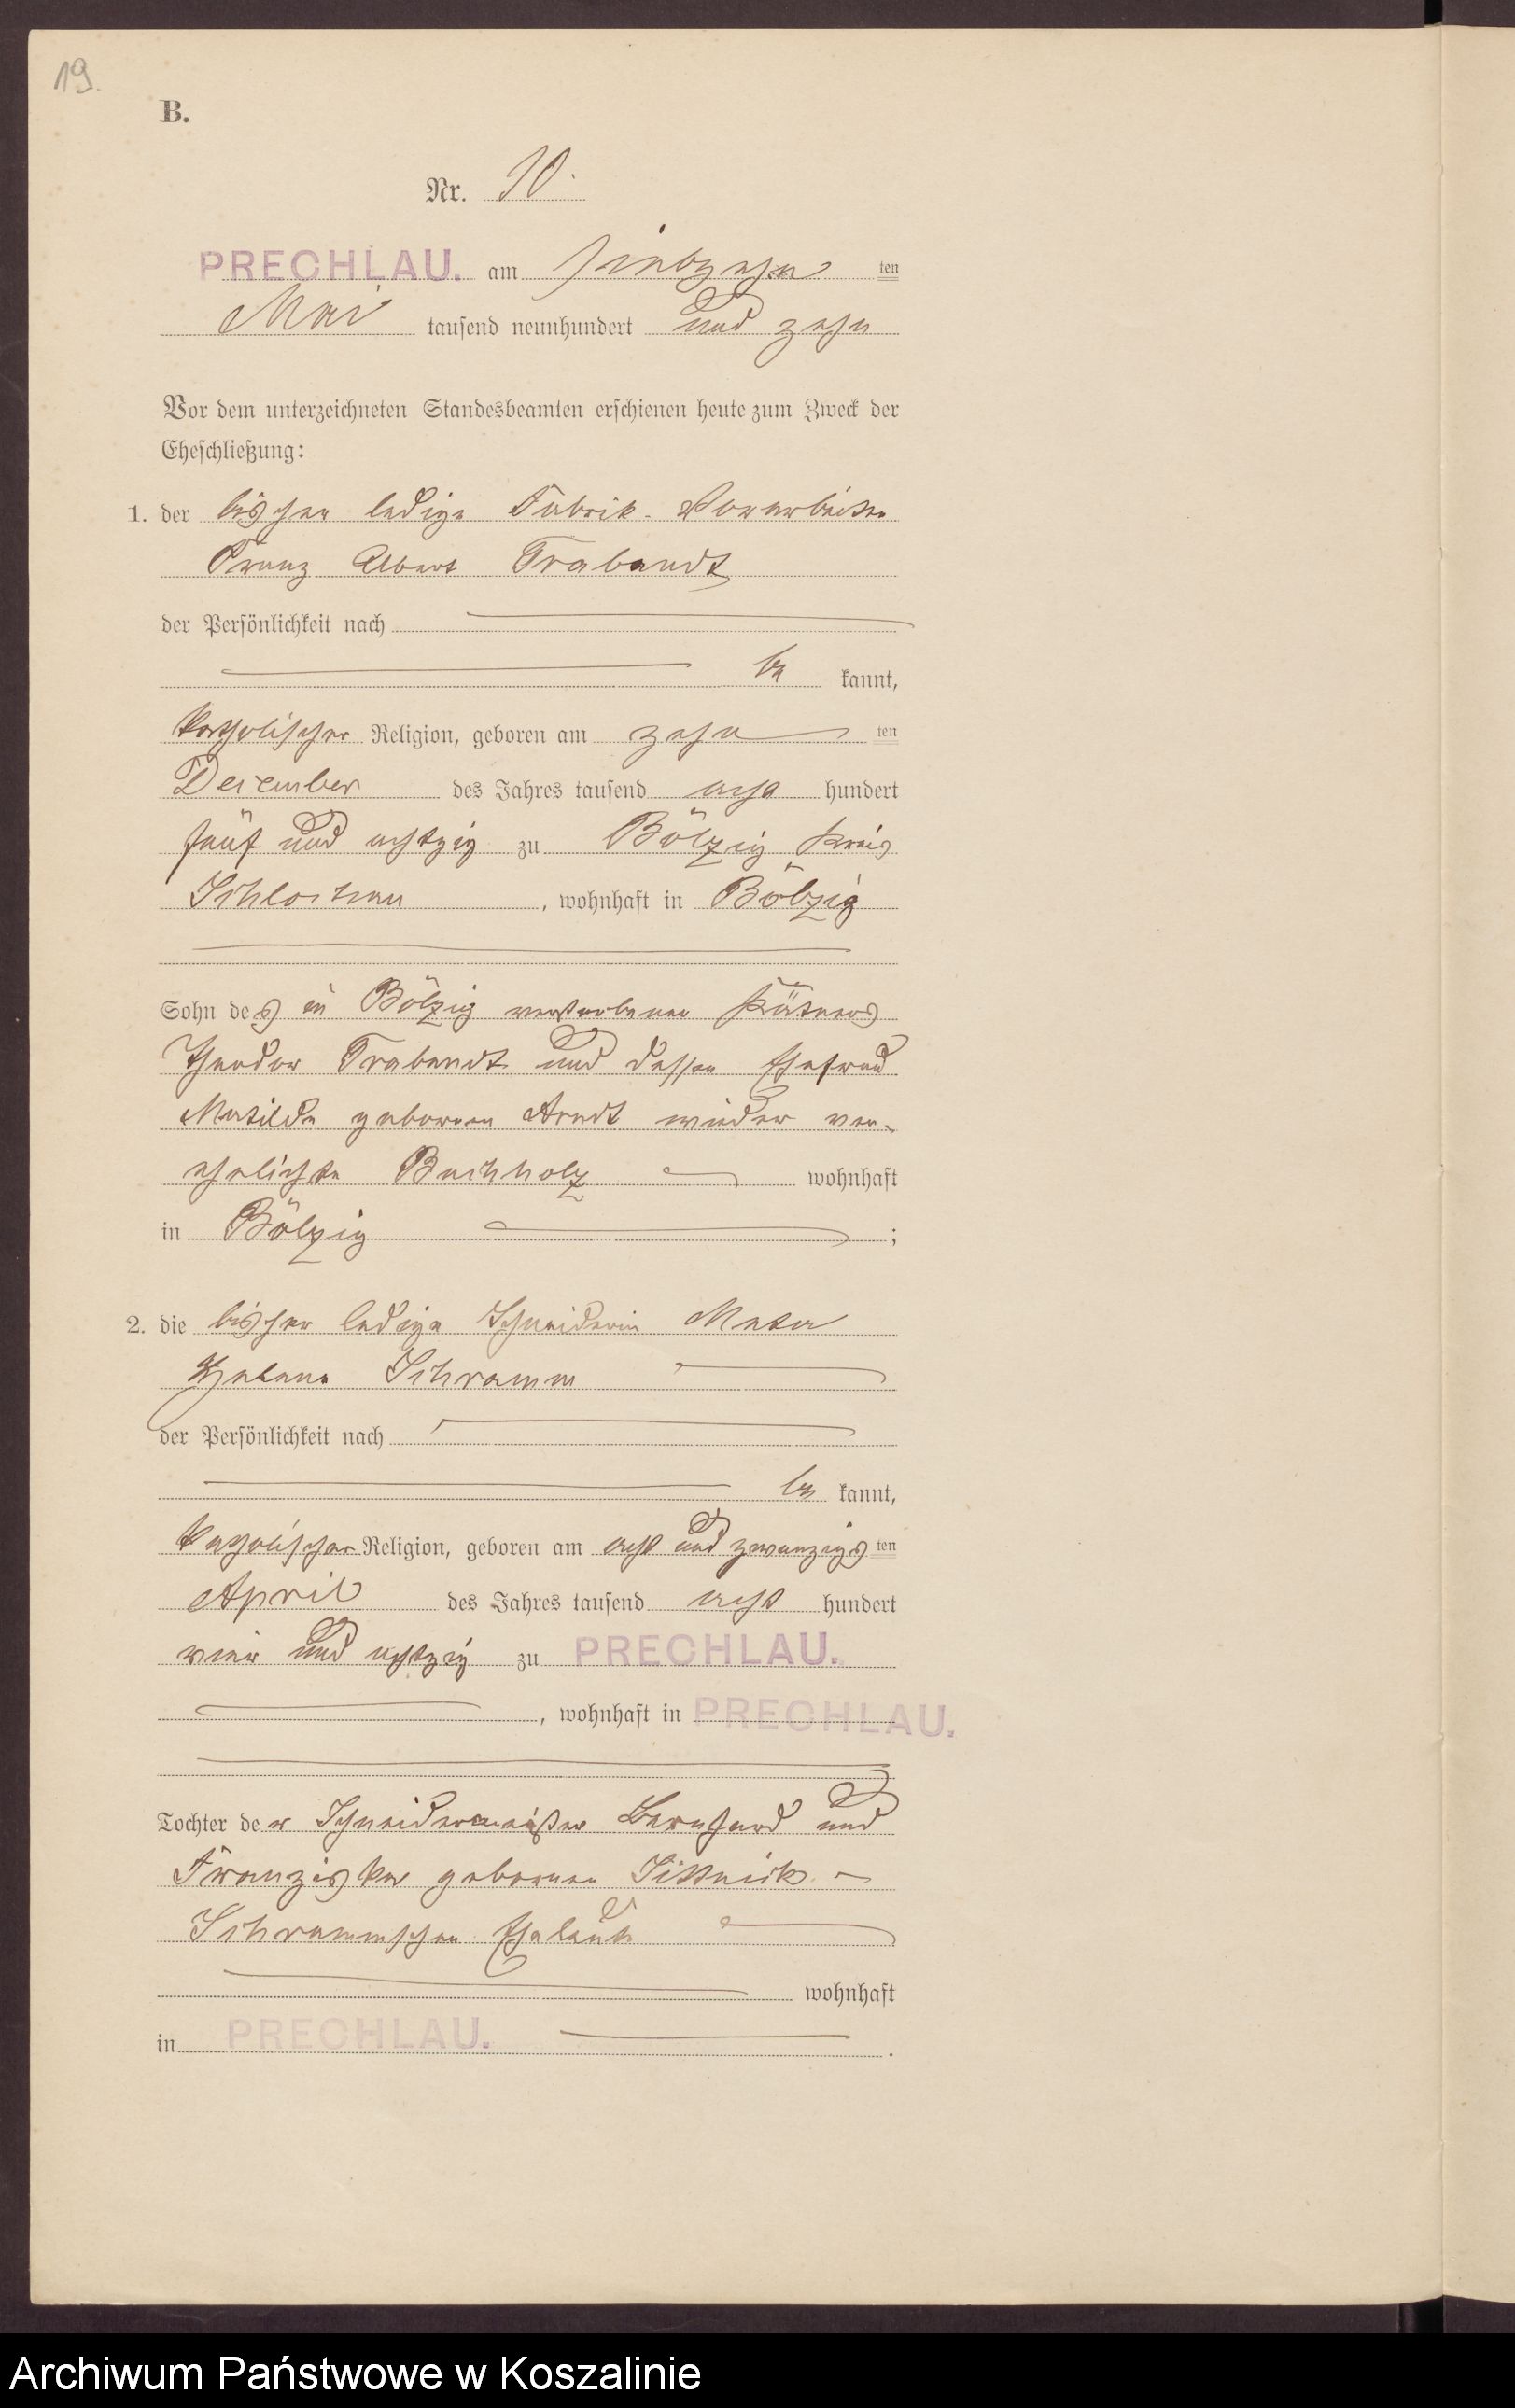 19.
B.
Nr. 10.
PRECHLAU. am siebzehn ten
Mai tausend neunhundert und zehn
Vor dem unterzeichneten Standesbeamten erschienen heute zum Zweck der
Eheschließung:
1. der bisher ledige Fabrik-Vorarbeiter
Franz Albert Trabandt
der Persönlichkeit nach
be kannt,
katholischer Religion, geboren am zehn ten
Dezember des Jahres tausend acht hundert
fünf und achtzig zu Bölzig Kreis
Schlochau, wohnhaft in Bölzig
Sohn des in Bölzig verstorbenen Kätners
Theodor Trabandt und dessen Ehefrau
Matilde geborenen Arndt wieder ver-
ehelichte Buchholz wohnhaft
in Bölzig ;
2. die bisher ledige Schneiderin Meta
Helene Schramm
der Persönlichkeit nach
be kannt,
katholischer Religion, geboren am acht und zwanzigs ten
April des Jahres tausend acht hundert
vier und achtzig zu PRECHLAU.
, wohnhaft in PRECHLAU.
Tochter der Schneidermeister Bernhard und
Franziska geborenen
Schrammschen Eheleute
wohnhaft
in PRECHLAU. .
Archiwum Państwowe w Koszalinie